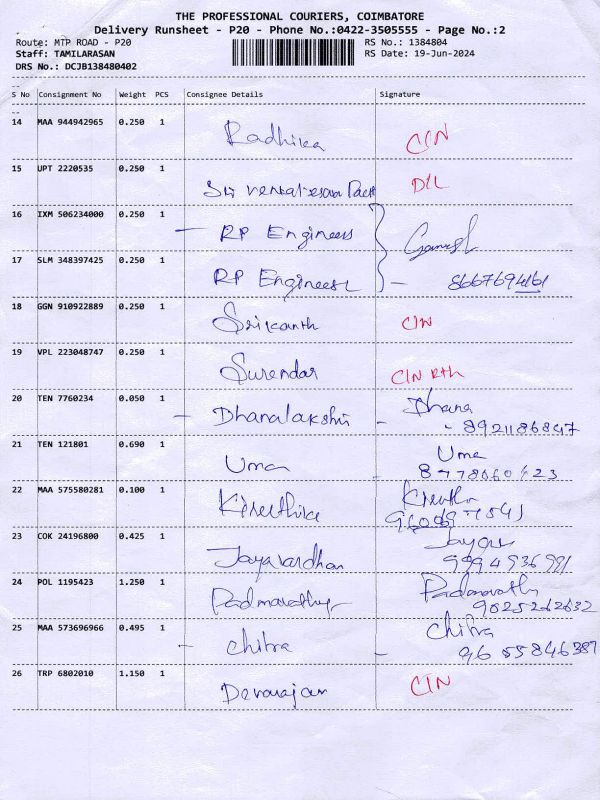 THE PROFESSIONAL COURIERS, COIMBATORE
Delivery Runsheet - P20 - Phone No.:0422-3505555 - Page No.:2
Route: MTP ROAD - P20 RS No.: 1384804
Staff: TAMILARASAN RS Date: 19-Jun-2024
DRS No.: DCJB138480402
S No Consignment No Weight PCS Consignee Details Signature
14 MAA 944942965 0.250 1 Radhika CIN
15 UPT 2220535 0.250 1 Sri venkateswara Pack D/L
16 IXM 506234000 0.250 1 - RP Engineers
Ganesh
17 SLM 348397425 0.250 1 RP Engineers - 8667694161
18 GGN 910922889 0.250 1 Srikanth CIN
19 VPL 223048747 0.250 1 Surendar CIN Rth
20 TEN 7760234 0.050 1 - Dhanalakshmi - Dhana
- 8921186847
21 TEN 121801 0.690 1 Uma Uma
8778660423
22 MAA 575580281 0.100 1 Kiruthika
23 COK 24196800 0.425 1 Jayavardhan
9994936991
24 POL 1195423 1.250 1 Padmavathy Padmavathi
9025262632
25 MAA 573696966 0.495 1 - Chitra - Chitra
9655846387
26 TRP 6802010 1.150 1 Devarajan CIN